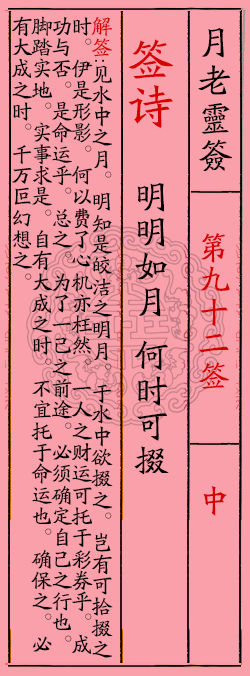 月老靈簽
第九十二签
中
签诗
明明如月 何时可掇
解签:见水中之月。明知是皎洁之明月。于水中欲掇之。岂有可拾掇之
时。伊是形影。何以费了心机亦枉然。一人之财运可托于彩券乎。成
功与否。是命运乎。总之。为了一己之前途。必须确定自己之行也。
脚踏实地。实事求是。自有大成之时。不宜托于命运也。确保之。必
有大成之时。千万叵幻想之。